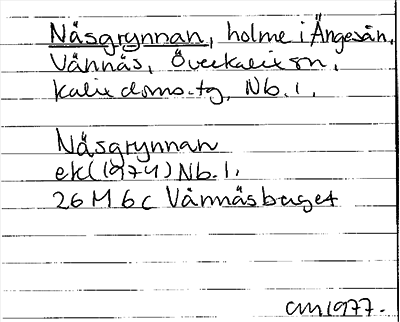 Näsgrynnan, holme i Ängesån,
Vännäs, Överkalix sn,
Kalix doms.tg, Nb. l.
Näsgrynnan
ek (1974) Nb. l.
26 M 6 c Vännäsberget
CM 1977.